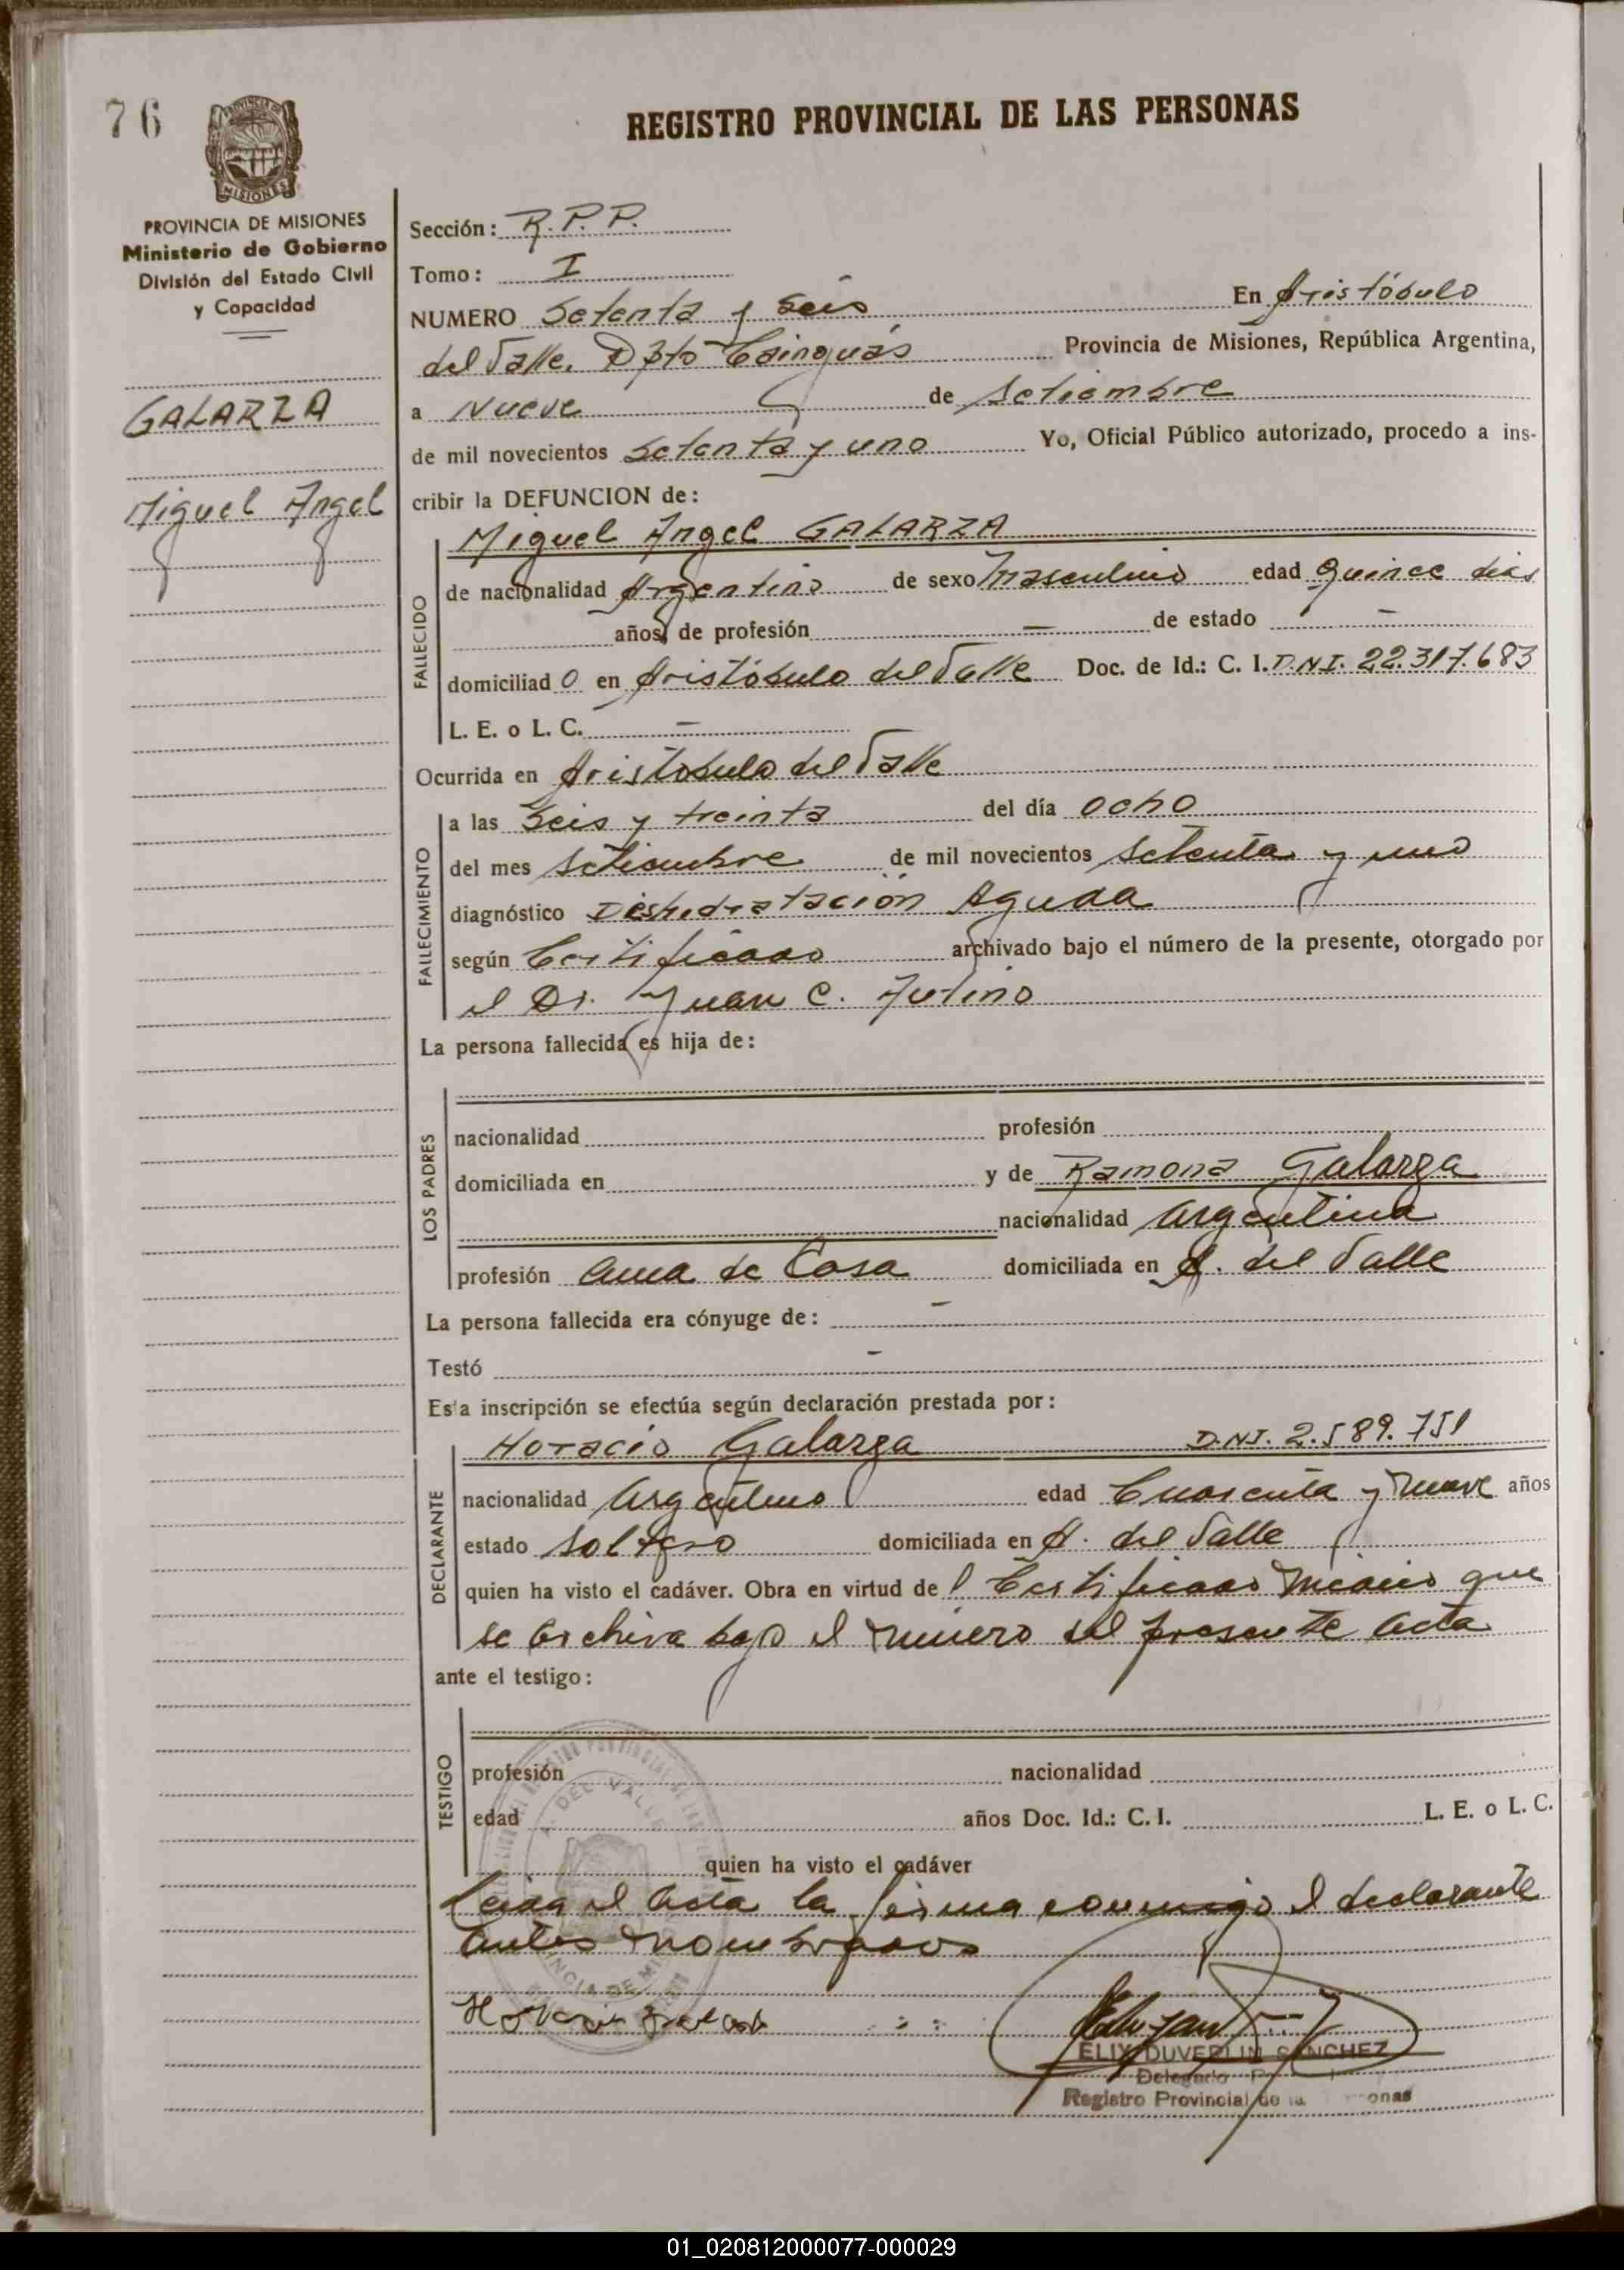 76
REGISTRO PROVINCIAL DE LAS PERSONAS
MISIONES
PROVINCIA DE MISIONES
Ministerio de Gobierno
División del Estado Civil
y Capacidad
GALARZA
Miguel Angel
Sección: R.P.P.
Tomo: I
NUMERO Setenta y Seis En Aristóbulo
del Valle. Dpto Cainguás Provincia de Misiones, República Argentina,
a Nueve de Setiembre
de mil novecientos Setenta y uno Yo, Oficial Público autorizado, procedo a ins-
cribir la DEFUNCION de:
FALLECIDO
Miguel Angel GALARZA
de nacionalidad Argentino de sexo Masculino edad Quince dias
años, de profesión — de estado —
domiciliad o en Aristóbulo del Valle Doc. de Id.: C. I. D.N.I. 22.317.683
L. E. o L. C. —
Ocurrida en Aristobulo del Valle
FALLECIMIENTO
a las Seis y treinta del día ocho
del mes Setiembre de mil novecientos Setenta y uno
diagnóstico Deshidratación Aguda
según Certificado archivado bajo el número de la presente, otorgado por
el Dr. Juan C.
La persona fallecida es hija de:
LOS PADRES
nacionalidad profesión
domiciliada en y de Ramona Galarza
nacionalidad Argentina
profesión Ama de Casa domiciliada en A. del Valle
La persona fallecida era cónyuge de: —
Testó —
Esta inscripción se efectúa según declaración prestada por:
DECLARANTE
Horacio Galarza D.N.I. 2.589.751
nacionalidad Argentino edad Cuarenta y nueve años
estado soltero domiciliada en A. del Valle
quien ha visto el cadáver. Obra en virtud de l Certificado Médico que
se archiva bajo el número del presente acta
ante el testigo:
TESTIGO
profesión nacionalidad
edad años Doc. Id.: C. I. L. E. o L. C.
quien ha visto el cadáver
Leida el acta la firma conmigo el declarante
antes nombrado
A. DEL VALLE
Horacio Galarza
ELIX DUVERLIN SANCHEZ
Delegado
Registro Provincial de la
01_020812000077-000029